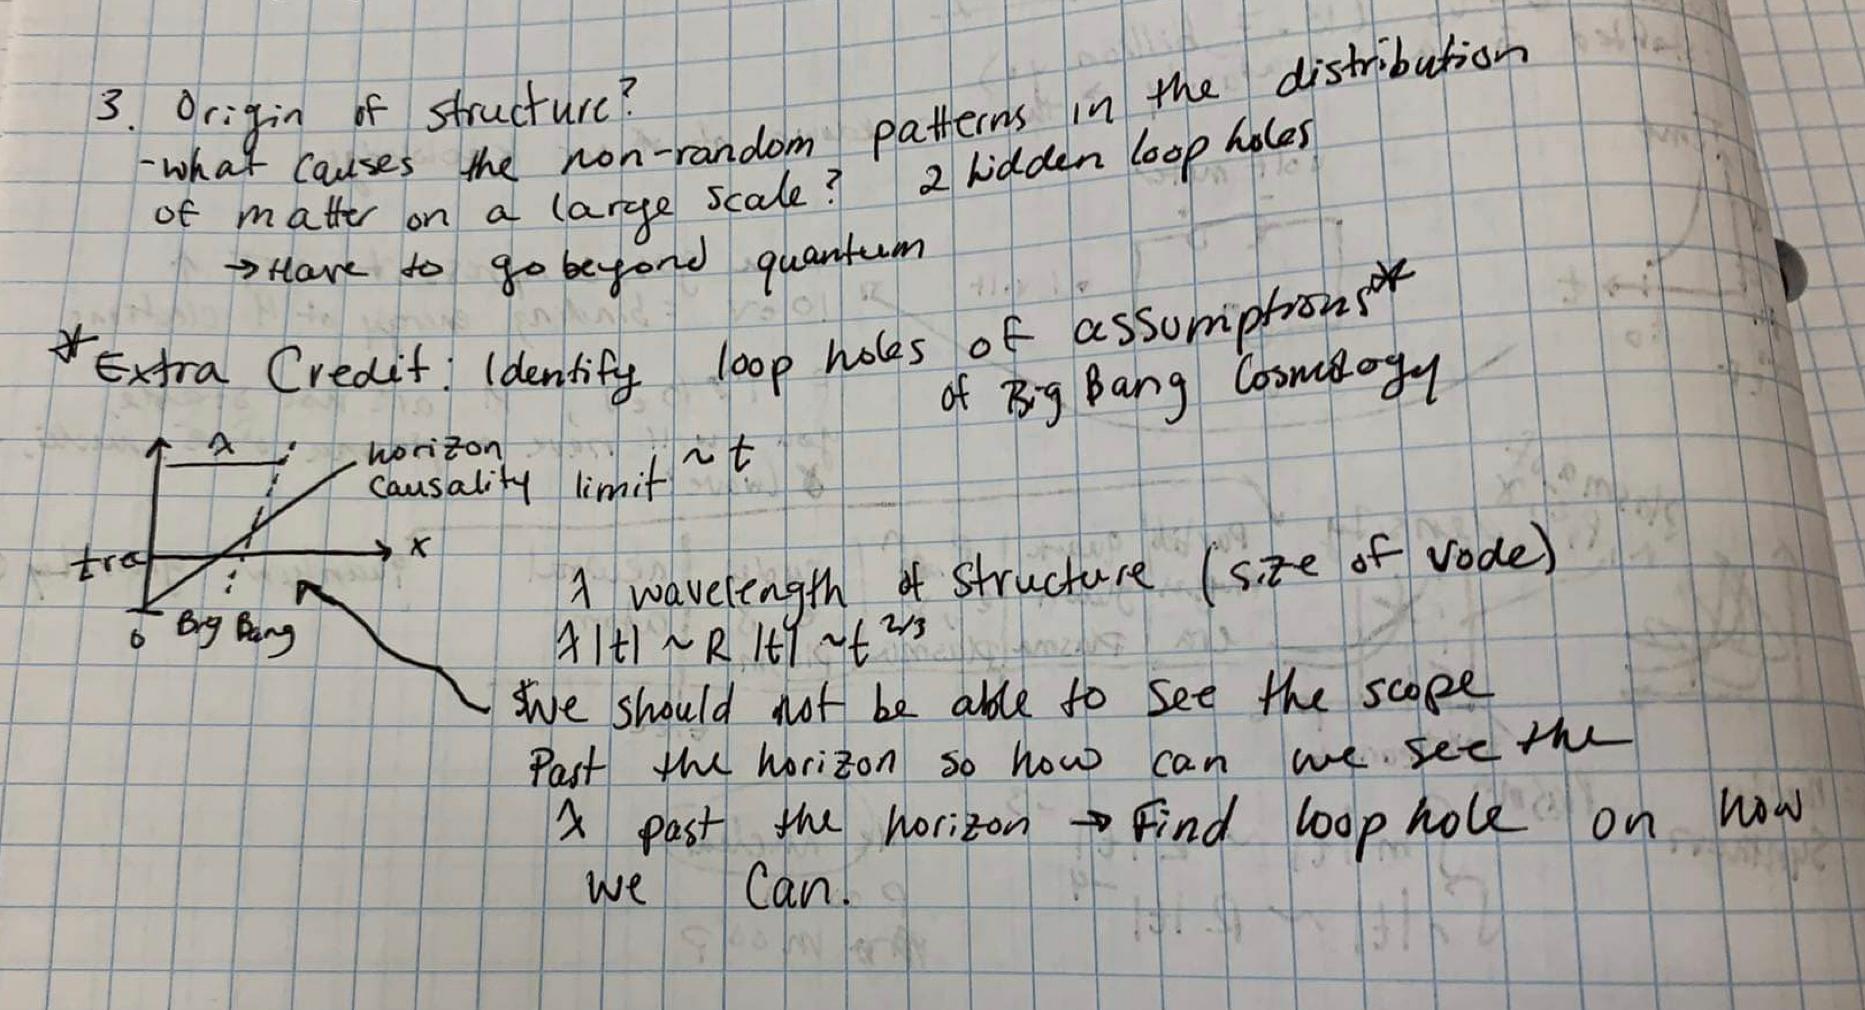 3. Origin of structure?
-what causes the non-random patterns in the distribution
of matter on a large scale? 2 hidden loop holes
→ Have to go beyond quantum
*Extra Credit: Identify loop holes of assumptions*
of Big Bang Cosmology
λ
horizon
causality limit ~ t
x
0 Big Bang
λ wavelength of structure (size of vode)
λ|t| ~ R |t| ~t^2/3
*we should not be able to see the scope
Past the horizon so how can we see the
λ past the horizon → Find loop hole on how
we can.